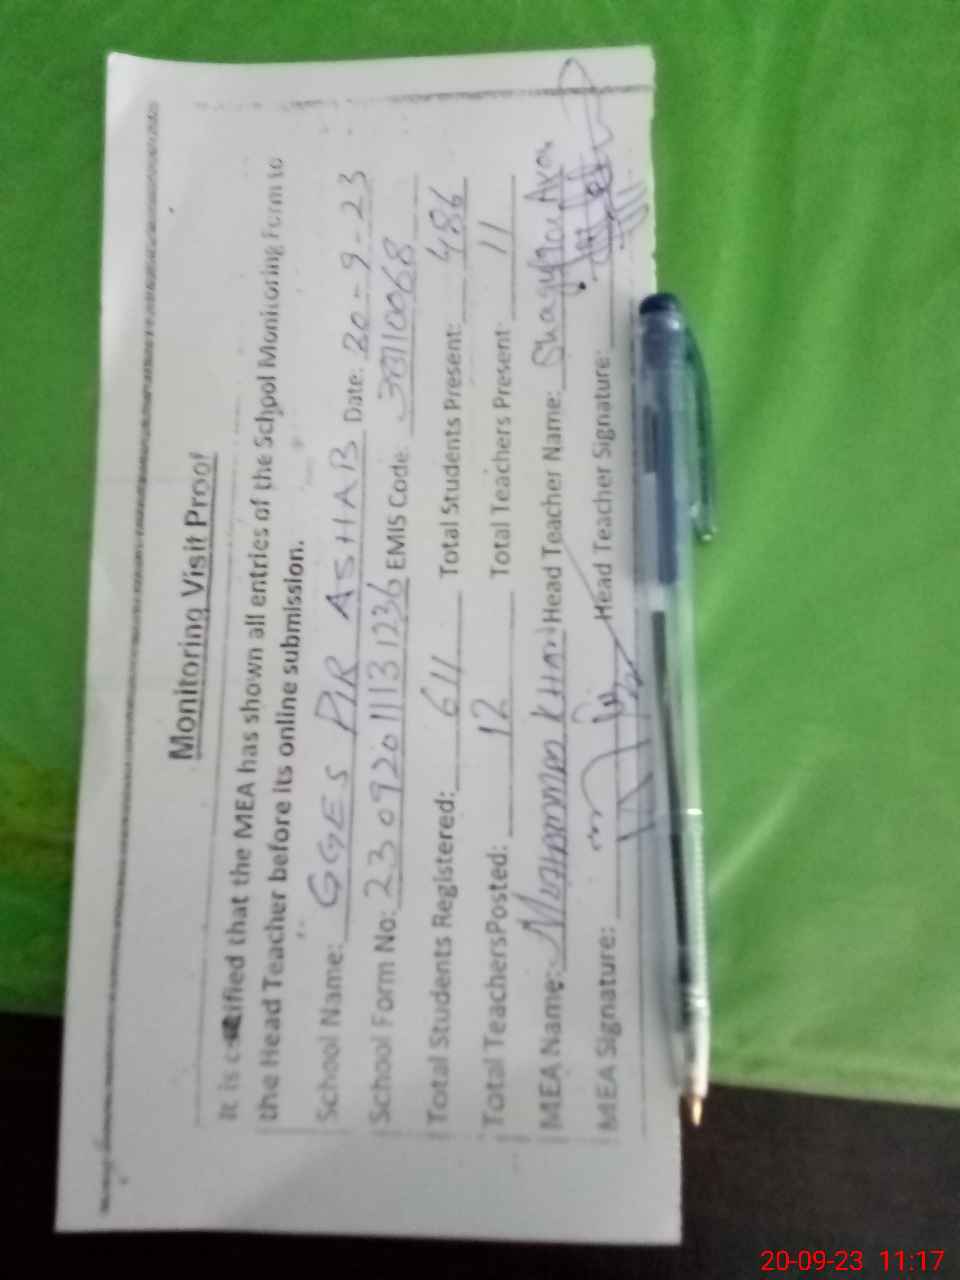 Monitoring Visit Proof
It is certified that the MEA has shown all entries of the School Monitoring Form to
the Head Teacher before its online submission.
School Name: GGES PIR ASHAB Date: 20-9-23
School Form No: 23092011131236 EMIS Code: 38110068
Total Students Registered: 611 Total Students Present: 486
Total TeachersPosted: 12 Total Teachers Present: 11
MEA Name: Muhammad Khan Head Teacher Name: Shagufta
MEA Signature: Head Teacher Signature:
20-09-23 11:17